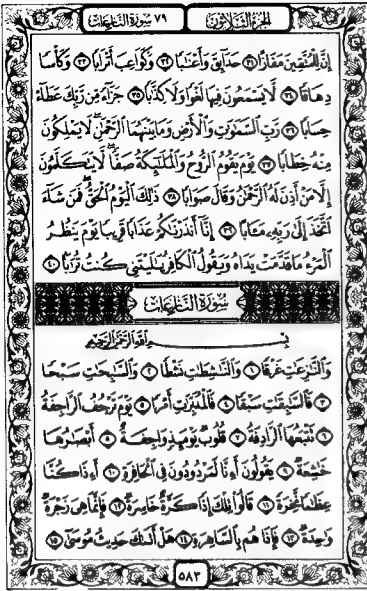 الجزء الثلاثون ٧٩ سورة النازعات
إِنَّ لِلْمُتَّقِينَ مَفَازًا ٣١ حَدَائِقَ وَأَعْنَٰبًا ٣٢ وَكَوَاعِبَ أَتْرَابًا ٣٣ وَكَأْسًا
دِهَاقًا ٣٤ لَّا يَسْمَعُونَ فِيهَا لَغْوًا وَلَا كِذَّٰبًا ٣٥ جَزَآءً مِّن رَّبِّكَ عَطَآءً
حِسَابًا ٣٦ رَّبِّ السَّمَٰوَٰتِ وَالْأَرْضِ وَمَا بَيْنَهُمَا الرَّحْمَٰنِ لَا يَمْلِكُونَ
مِنْهُ خِطَابًا ٣٧ يَوْمَ يَقُومُ الرُّوحُ وَالْمَلَٰٓئِكَةُ صَفًّا لَّا يَتَكَلَّمُونَ
إِلَّا مَنْ أَذِنَ لَهُ الرَّحْمَٰنُ وَقَالَ صَوَابًا ٣٨ ذَٰلِكَ الْيَوْمُ الْحَقُّ فَمَن شَآءَ
اتَّخَذَ إِلَىٰ رَبِّهِ مَـَٔابًا ٣٩ إِنَّآ أَنذَرْنَٰكُمْ عَذَابًا قَرِيبًا يَوْمَ يَنظُرُ
الْمَرْءُ مَا قَدَّمَتْ يَدَاهُ وَيَقُولُ الْكَافِرُ يَٰلَيْتَنِي كُنتُ تُرَٰبًا ٤٠
سورة النازعات
بِسْمِ اللَّهِ الرَّحْمَٰنِ الرَّحِيمِ
وَالنَّٰزِعَٰتِ غَرْقًا ١ وَالنَّٰشِطَٰتِ نَشْطًا ٢ وَالسَّٰبِحَٰتِ سَبْحًا
٣ فَالسَّٰبِقَٰتِ سَبْقًا ٤ فَالْمُدَبِّرَٰتِ أَمْرًا ٥ يَوْمَ تَرْجُفُ الرَّاجِفَةُ
٦ تَتْبَعُهَا الرَّادِفَةُ ٧ قُلُوبٌ يَوْمَئِذٍ وَاجِفَةٌ ٨ أَبْصَٰرُهَا
خَٰشِعَةٌ ٩ يَقُولُونَ أَءِنَّا لَمَرْدُودُونَ فِي الْحَافِرَةِ ١٠ أَءِذَا كُنَّا
عِظَٰمًا نَّخِرَةً ١١ قَالُوا تِلْكَ إِذًا كَرَّةٌ خَاسِرَةٌ ١٢ فَإِنَّمَا هِيَ زَجْرَةٌ
وَٰحِدَةٌ ١٣ فَإِذَا هُم بِالسَّاهِرَةِ ١٤ هَلْ أَتَىٰكَ حَدِيثُ مُوسَىٰٓ ١٥
٥٨٣